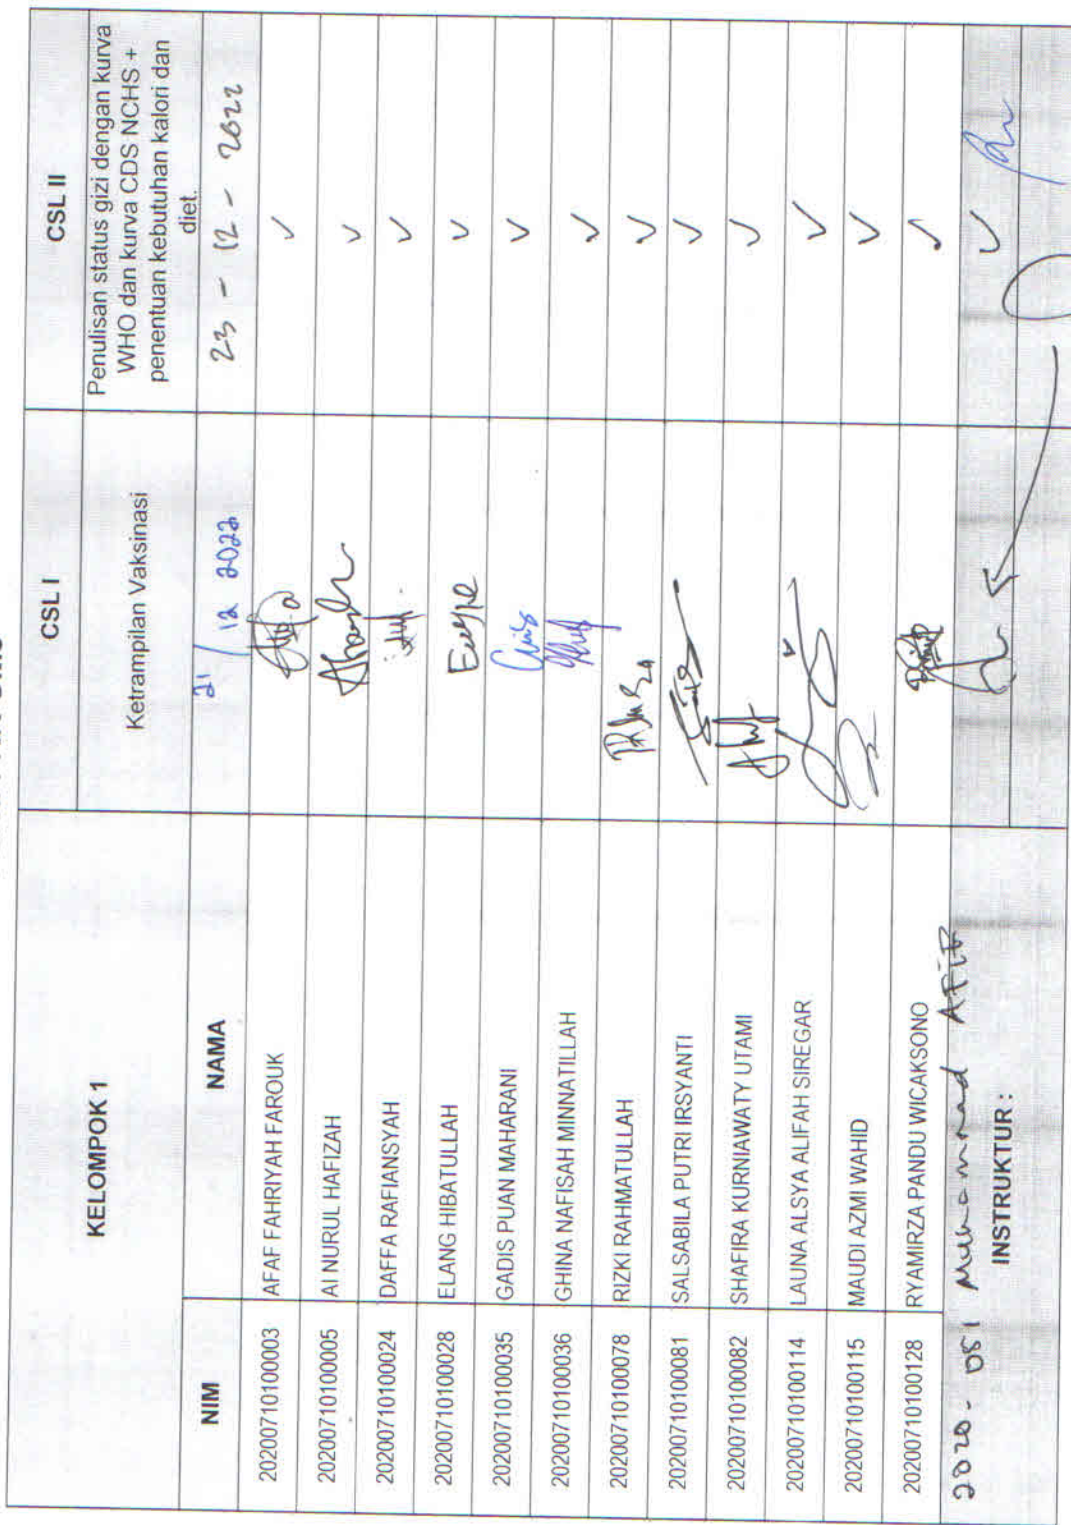 KELOMPOK 1
CSL I
CSL II
Ketrampilan Vaksinasi
Penulisan status gizi dengan kurva
WHO dan kurva CDS NCHS +
penentuan kebutuhan kalori dan
diet.
NIM NAMA
21/12 2022
23 - 12 - 2022
20200710100003 AFAF FAHRIYAH FAROUK ✓
20200710100005 AI NURUL HAFIZAH ✓
20200710100024 DAFFA RAFIANSYAH ✓
20200710100028 ELANG HIBATULLAH ✓
20200710100035 GADIS PUAN MAHARANI ✓
20200710100036 GHINA NAFISAH MINNATILLAH ✓
20200710100078 RIZKI RAHMATULLAH ✓
20200710100081 SALSABILA PUTRI IRSYANTI ✓
20200710100082 SHAFIRA KURNIAWATY UTAMI ✓
20200710100114 LAUNA ALSYA ALIFAH SIREGAR ✓
20200710100115 MAUDI AZMI WAHID ✓
20200710100128 RYAMIRZA PANDU WICAKSONO ✓
2020 - 051 Muhammad Afif ✓
INSTRUKTUR :